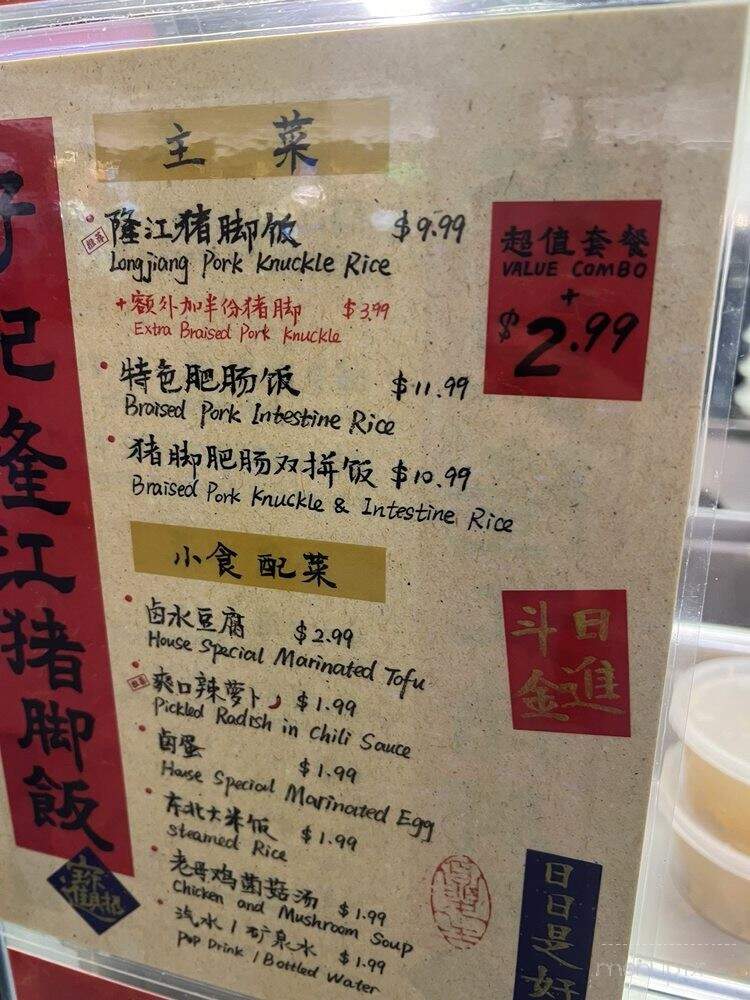 主 菜
隆江猪脚饭 $9.99
推荐
Longjiang Pork Knuckle Rice
+额外加半份猪脚 $3.99
Extra Braised Pork Knuckle
特色肥肠饭 $11.99
Braised Pork Intestine Rice
猪脚肥肠双拼饭 $10.99
Braised Pork Knuckle & Intestine Rice
超值套餐
VALUE COMBO
+
$2.99
小食配菜
卤水豆腐 $2.99
House Special Marinated Tofu
爽口辣萝卜 $1.99
Pickled Radish in Chili Sauce
卤蛋 $1.99
House Special Marinated Egg
东北大米饭 $1.99
Steamed Rice
老母鸡菌菇汤 $1.99
Chicken and Mushroom Soup
汽水/矿泉水 $1.99
Pop Drink / Bottled Water
日進
斗金
日日是好
记隆江猪脚飯